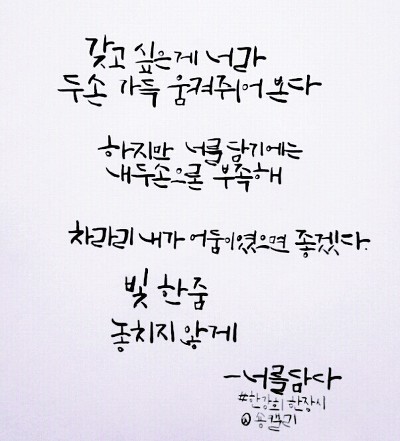 갖고 싶은게 너라
두손 가득 움켜쥐어 본다
하지만 너를 담기에는
내두손으론 부족해
차라리 내가 어둠이였으면 좋겠다.
빛 한줌
놓치지 않게
-너를담다
#한강희 한장시
@용캘리